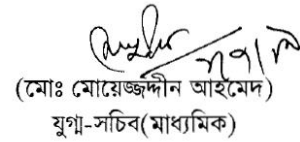 (মোঃ মোয়েজ্জদ্দীন আহমেদ)
যুগ্ম-সচিব(মাধ্যমিক)